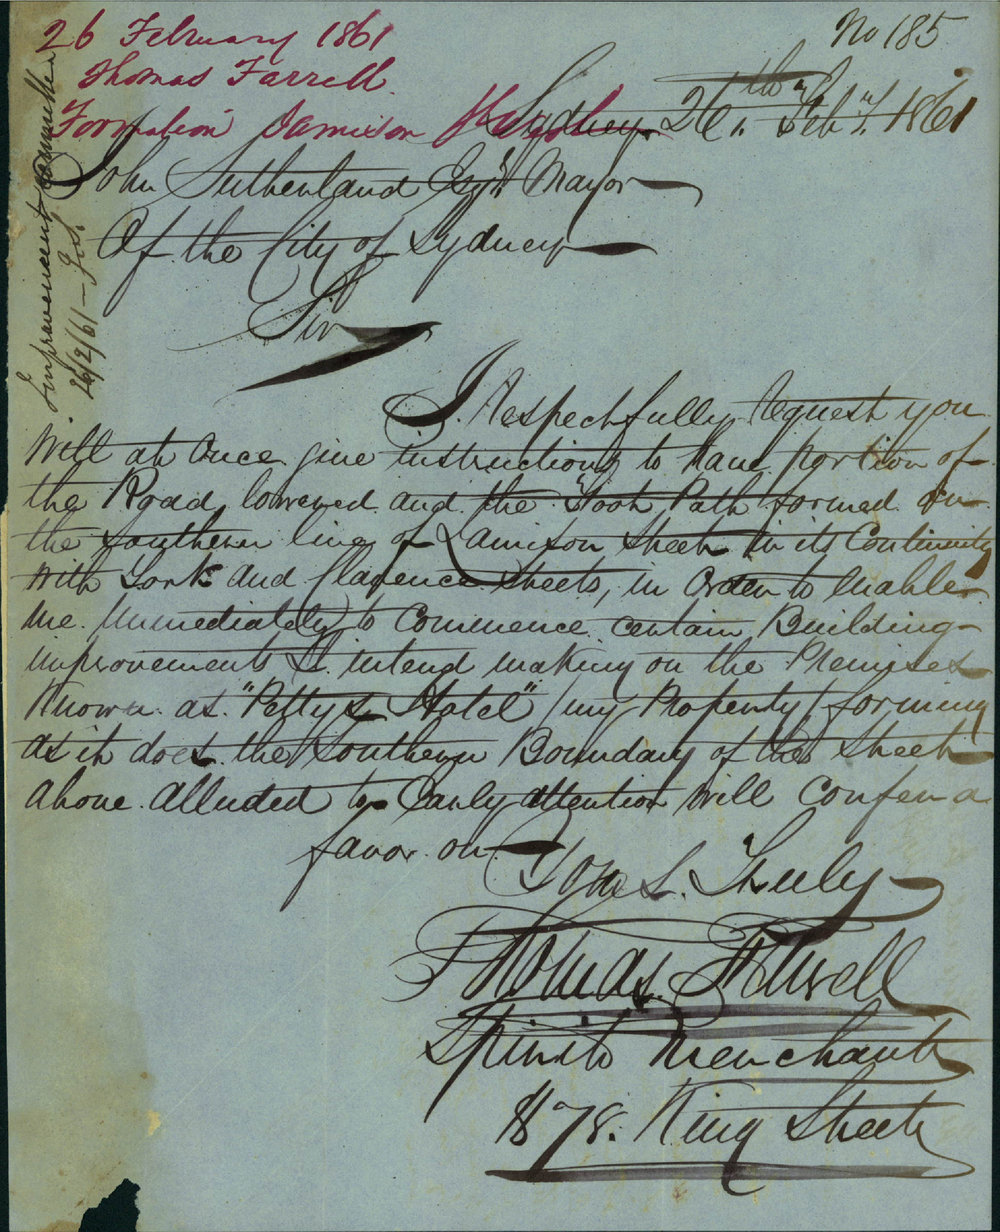 26 February 1861
Thomas Farrell
Formation Jamison
No 185
Sydney 26th Feby. 1861
John Sutherland Esqr. Mayor
Of the City of Sydney
Sir
I Respectfully request you
Will at Once give instructions to have portion of
the Road lowered and the Foot Path formed on
the Southern line of Jamison Street in its Continuity
With York and Clarence Streets, in Order to Enable
me Immediately to Commence certain Building
improvements I intend making on the Premises
Known as "Pettys Hotel" (my Property) forming
as it does the Southern Boundary of the Street
above alluded to Early attention Will Confer a
favor on
Yours Truly
Thomas Farrell
Spirit Merchant
78. King Street
Improvement Committee
26/2/61